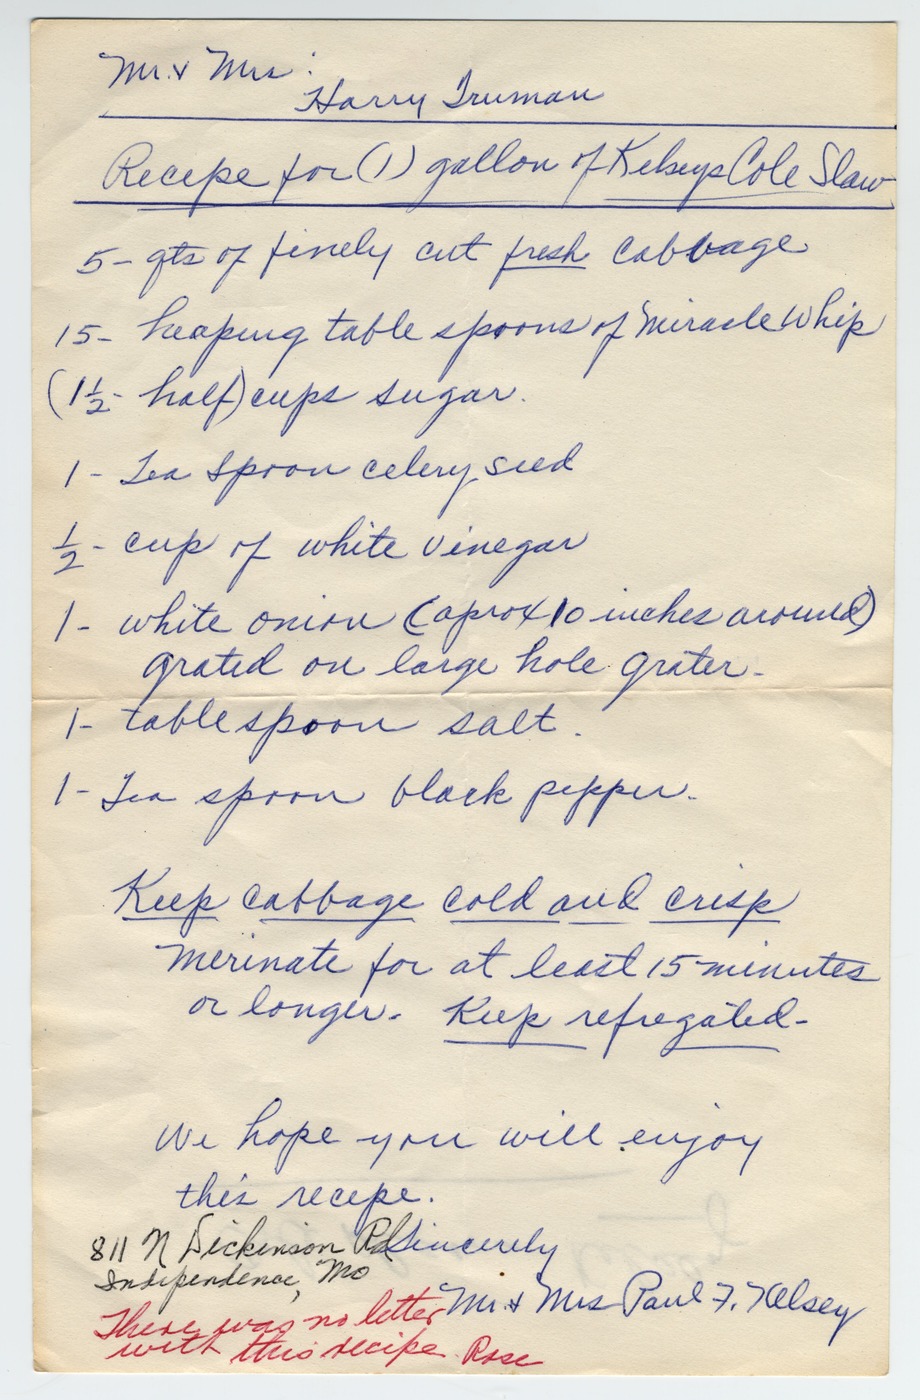 Mr. & Mrs:
Harry Truman
Recepe for (1) gallon of Kelseys Cole Slaw
5- qts of finely cut fresh cabbage
15- heaping table spoons of Miracle Whip
(1½- half) cups sugar.
1- Tea spoon celery seed
½- cup of white vinegar
1- white onion (aprox 10 inches around)
grated on large hole grater.
1- tablespoon salt.
1- Tea spoon black pepper.
Keep cabbage cold and crisp
Merinate for at least 15 minutes
or longer. Keep refregated.
We hope you will enjoy
this recepe.
811 N Dickinson Rd Sincerely
Independence, Mo
Mr. & Mrs Paul F. Kelsey
There was no letter
with this recipe. Rose